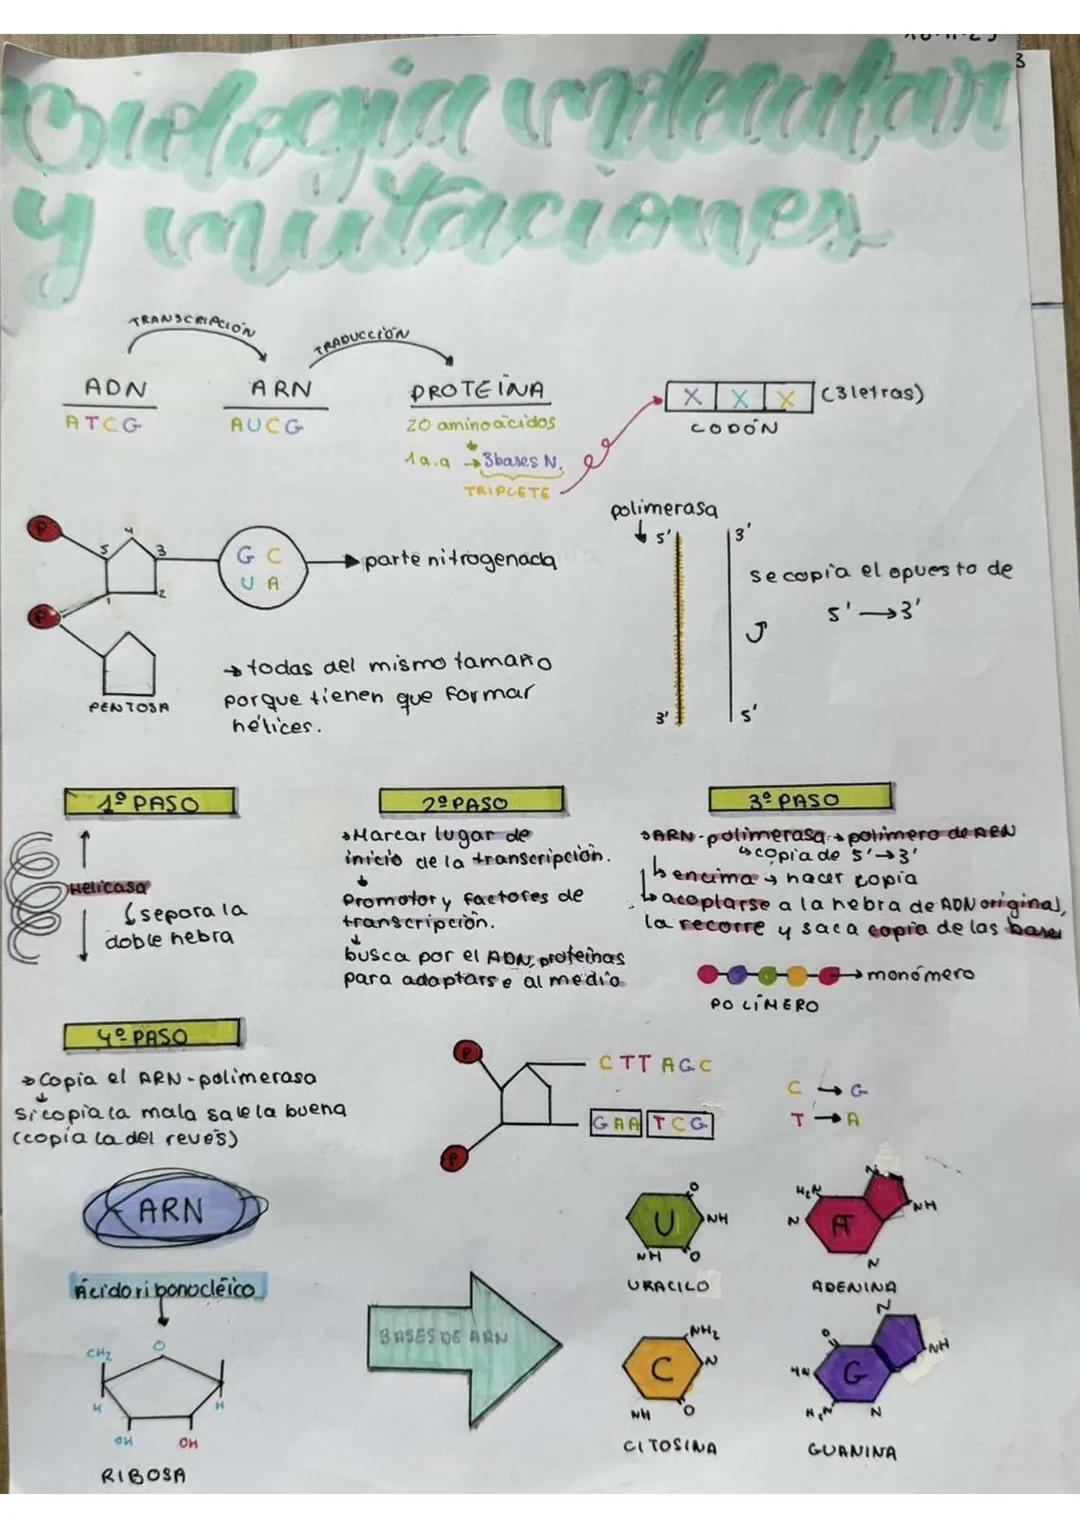 Biología molecular
y mutaciones
TRANSCRIPCIÓN
TRADUCCIÓN
ADN
ARN
PROTEÍNA
ATCG
AUCG
20 aminoácidos
1a.a → 3bases N.
TRIPLETE
X X X (3letras)
CODÓN
P
5 4 3
1 2
G C
U A
parte nitrogenada
P
PENTOSA
→ todas del mismo tamaño
porque tienen que formar
hélices.
polimerasa
5' 3'
se copia el opuesto de
5' → 3'
3' 5'
1º PASO
Helicasa
separa la
doble hebra
2º PASO
→ Marcar lugar de
inicio de la transcripción.
Promotor y factores de
transcripción.
busca por el ADN, proteínas
para adaptarse al medio
3º PASO
→ARN-polimerasa → polímero de ARN
↳copia de 5'→3'
encima → hacer copia
↳ acoplarse a la hebra de ADN original,
la recorre y saca copia de las bases
monómero
POLÍMERO
4º PASO
→ Copia el ARN-polimerasa
si copia la mala sale la buena
(copia la del revés)
P
CTT AGC
GAA TCG
P
C → G
T → A
ARN
Ácido ribonocléico
CH₂ O
H H
OH OH
RIBOSA
BASES DE ARN
O
U NH
NH O
URACILO
H₂N N
N A NH
N
ADENINA
NH₂
C N
NH O
CITOSINA
N
O NH
HN G
H₂N N
GUANINA